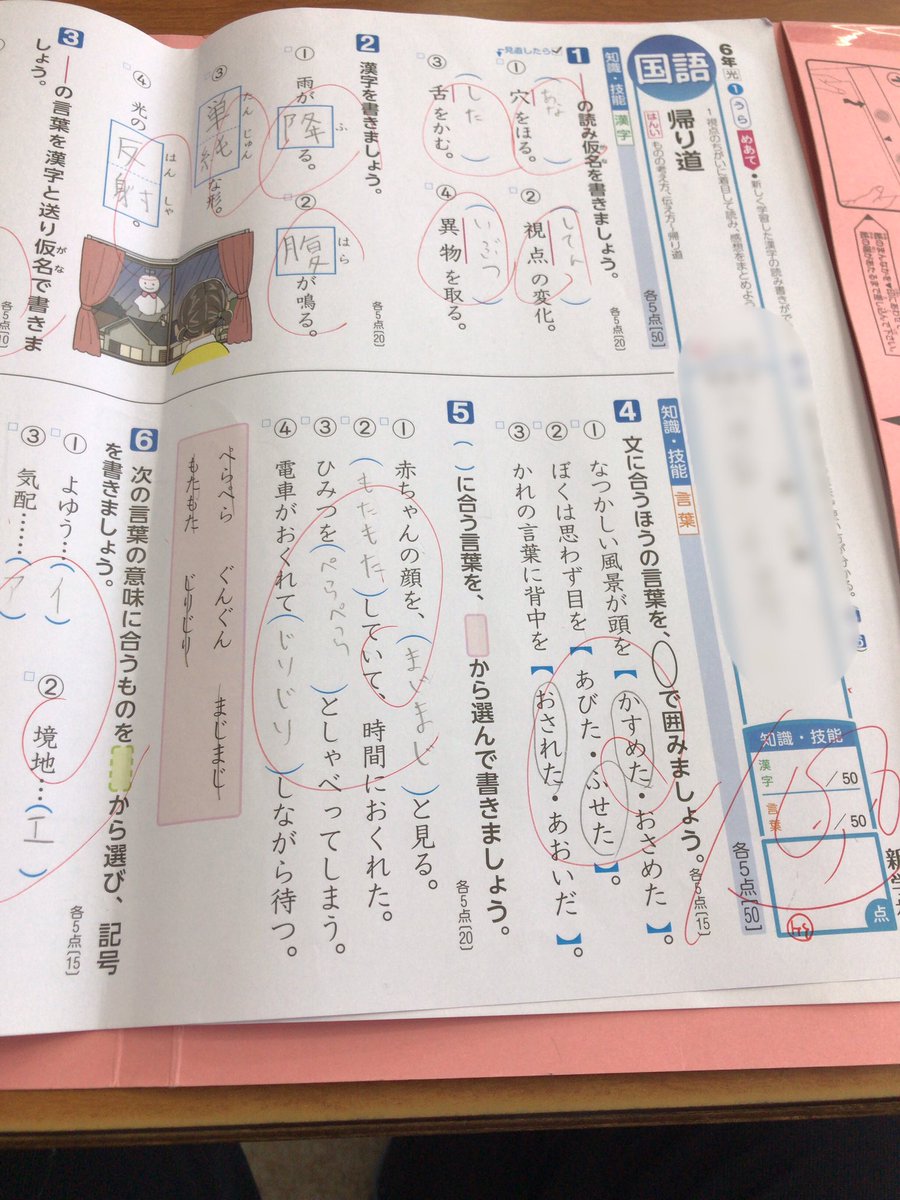 6年 光 1 うら
めあて
●新しく学習した漢字の読み書きがで
1視点のちがいに着目して読み、感想をまとめよう
はんい ものの考え方、伝え方〜帰り道
国語
帰り道
知識・技能 漢字
各5点[50]
見直したら✓
1 ――の読み仮名を書きましょう。
各5点[20]
① 穴をほる。
あな
② 視点の変化。
してん
③ 舌をかむ。
した
④ 異物を取る。
いぶつ
2 漢字を書きましょう。
各5点[20]
① 雨が降る。
ふ
② 腹が鳴る。
はら
③ 単純な形。
たんじゅん
④ 光の反射。
はんしゃ
3 ――の言葉を漢字と送り仮名で書きま
がな
しょう。
各5点[10]
知識・技能
漢字 /50
言葉 /50
点
知識・技能 言葉
各5点[50]
4 文に合うほうの言葉を、◯で囲みましょう。
各5点[15]
① なつかしい風景が頭を【かすめた・おさめた】。
② ぼくは思わず目を【あびた・ふせた】。
③ かれの言葉に背中を【おされた・あおいだ】。
5 ( )に合う言葉を、 から選んで書きましょう。
各5点[20]
① 赤ちゃんの顔を、(まじまじ)と見る。
② (もたもた)していて、時間におくれた。
③ ひみつを(ぺらぺら)としゃべってしまう。
④ 電車がおくれて(じりじり)しながら待つ。
ぺらぺら ぐんぐん まじまじ
もたもた じりじり
6 次の言葉の意味に合うものを から選び、記号
を書きましょう。
各5点[15]
① よゆう…(イ)
② 境地…(エ)
③ 気配……(ア)